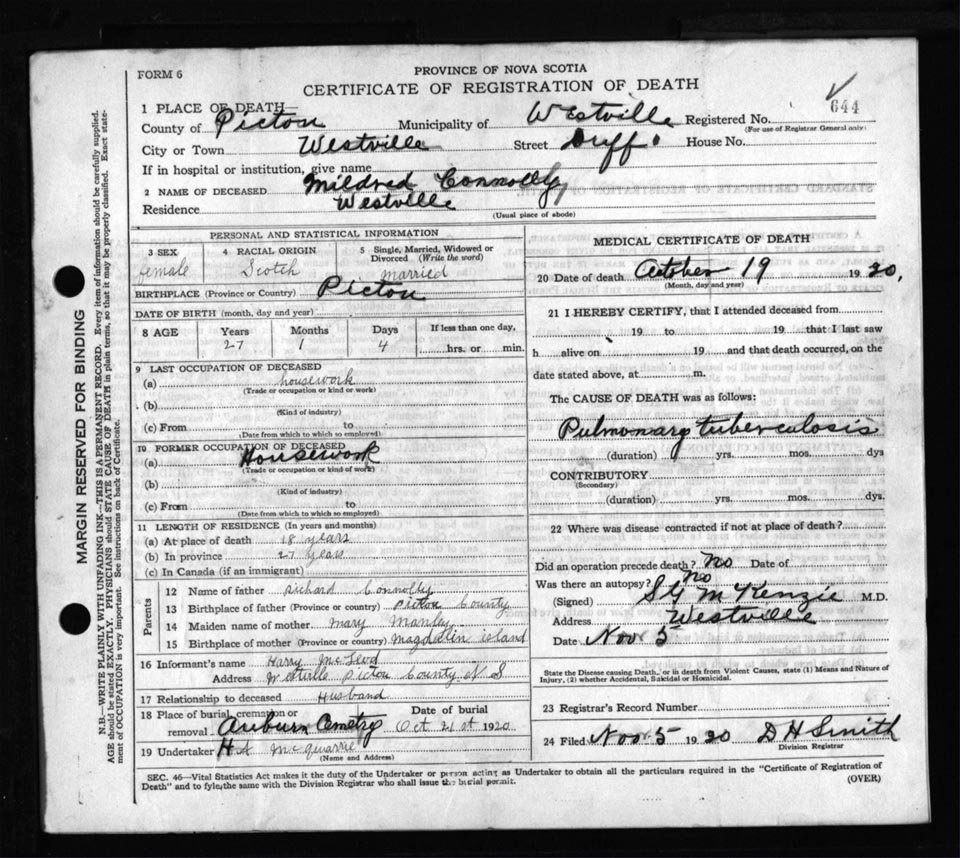 FORM 6
PROVINCE OF NOVA SCOTIA
CERTIFICATE OF REGISTRATION OF DEATH
644
1 PLACE OF DEATH—
County of Picton Municipality of Westville Registered No.
(For use of Registrar General only)
City or Town Westville Street Duff House No.
If in hospital or institution, give name
2 NAME OF DECEASED Mildred Connolly
Residence Westville
(Usual place of abode)
PERSONAL AND STATISTICAL INFORMATION
3 SEX 4 RACIAL ORIGIN 5 Single, Married, Widowed or Divorced (Write the word)
female Scotch married
BIRTHPLACE (Province or Country) Picton
DATE OF BIRTH (month, day and year)
8 AGE Years Months Days If less than one day,
27 1 4 hrs. or min.
9 LAST OCCUPATION OF DECEASED
(a) housework
(Trade or occupation or kind of work)
(b)
(Kind of industry)
(c) From to
(Date from which to which so employed)
10 FORMER OCCUPATION OF DECEASED
(a) Housework
(Trade or occupation or kind of work)
(b)
(Kind of industry)
(c) From to
(Date from which to which so employed)
11 LENGTH OF RESIDENCE (In years and months)
(a) At place of death 18 years
(b) In province 27 years
(c) In Canada (if an immigrant)
Parents
12 Name of father Richard Connolly
13 Birthplace of father (Province or country) Picton County
14 Maiden name of mother Mary Manley
15 Birthplace of mother (Province or country) Magdalin island
16 Informant's name Harry McLeod
Address Westville Picton County N S
17 Relationship to deceased Husband
18 Place of burial, cremation or removal Auburn Cemetry Date of burial Oct 21st 1920
19 Undertaker H A McQuarrie
(Name and Address)
MEDICAL CERTIFICATE OF DEATH
20 Date of death October 19 1920,
(Month, day and year)
21 I HEREBY CERTIFY, that I attended deceased from
19 to 19 that I last saw
h alive on 19 and that death occurred, on the
date stated above, at m.
The CAUSE OF DEATH was as follows:
Pulmonary tuberculosis
(duration) yrs. mos. dys
CONTRIBUTORY
(Secondary)
(duration) yrs. mos. dys.
22 Where was disease contracted if not at place of death?
Did an operation precede death? No Date of
Was there an autopsy? No
(Signed) McKenzie M.D.
Address Westville
Date Nov 5
State the Disease causing Death, or in death from Violent Causes, state (1) Means and Nature of
Injury, (2) whether Accidental, Suicidal or Homicidal.
23 Registrar's Record Number
24 Filed Nov 5 1920 D H Smith
Division Registrar
SEC. 46—Vital Statistics Act makes it the duty of the Undertaker or person acting as Undertaker to obtain all the particulars required in the "Certificate of Registration of
Death" and to fyle the same with the Division Registrar who shall issue the burial permit.
(OVER)
MARGIN RESERVED FOR BINDING
N.B.—WRITE PLAINLY WITH UNFADING INK—THIS IS A PERMANENT RECORD. Every item of information should be carefully supplied.
AGE should be stated EXACTLY. PHYSICIANS should STATE CAUSE OF DEATH in plain terms, so that it may be properly classified. Exact state-
ment of OCCUPATION is very important. See instructions on back of Certificate.